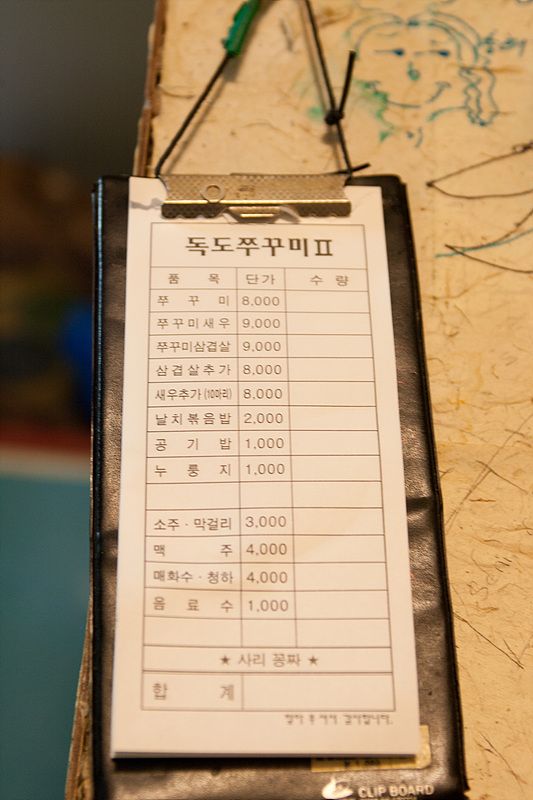 독도쭈꾸미Ⅱ
품 목 단가 수 량
쭈 꾸 미 8,000
쭈꾸미새우 9,000
쭈꾸미삼겹살 9,000
삼겹살추가 8,000
새우추가(10마리) 8,000
날치볶음밥 2,000
공 기 밥 1,000
누 룽 지 1,000
소주·막걸리 3,000
맥 주 4,000
매화수·청하 4,000
음 료 수 1,000
★ 사리 꽁짜 ★
합 계
감사합니다.
CLIP BOARD